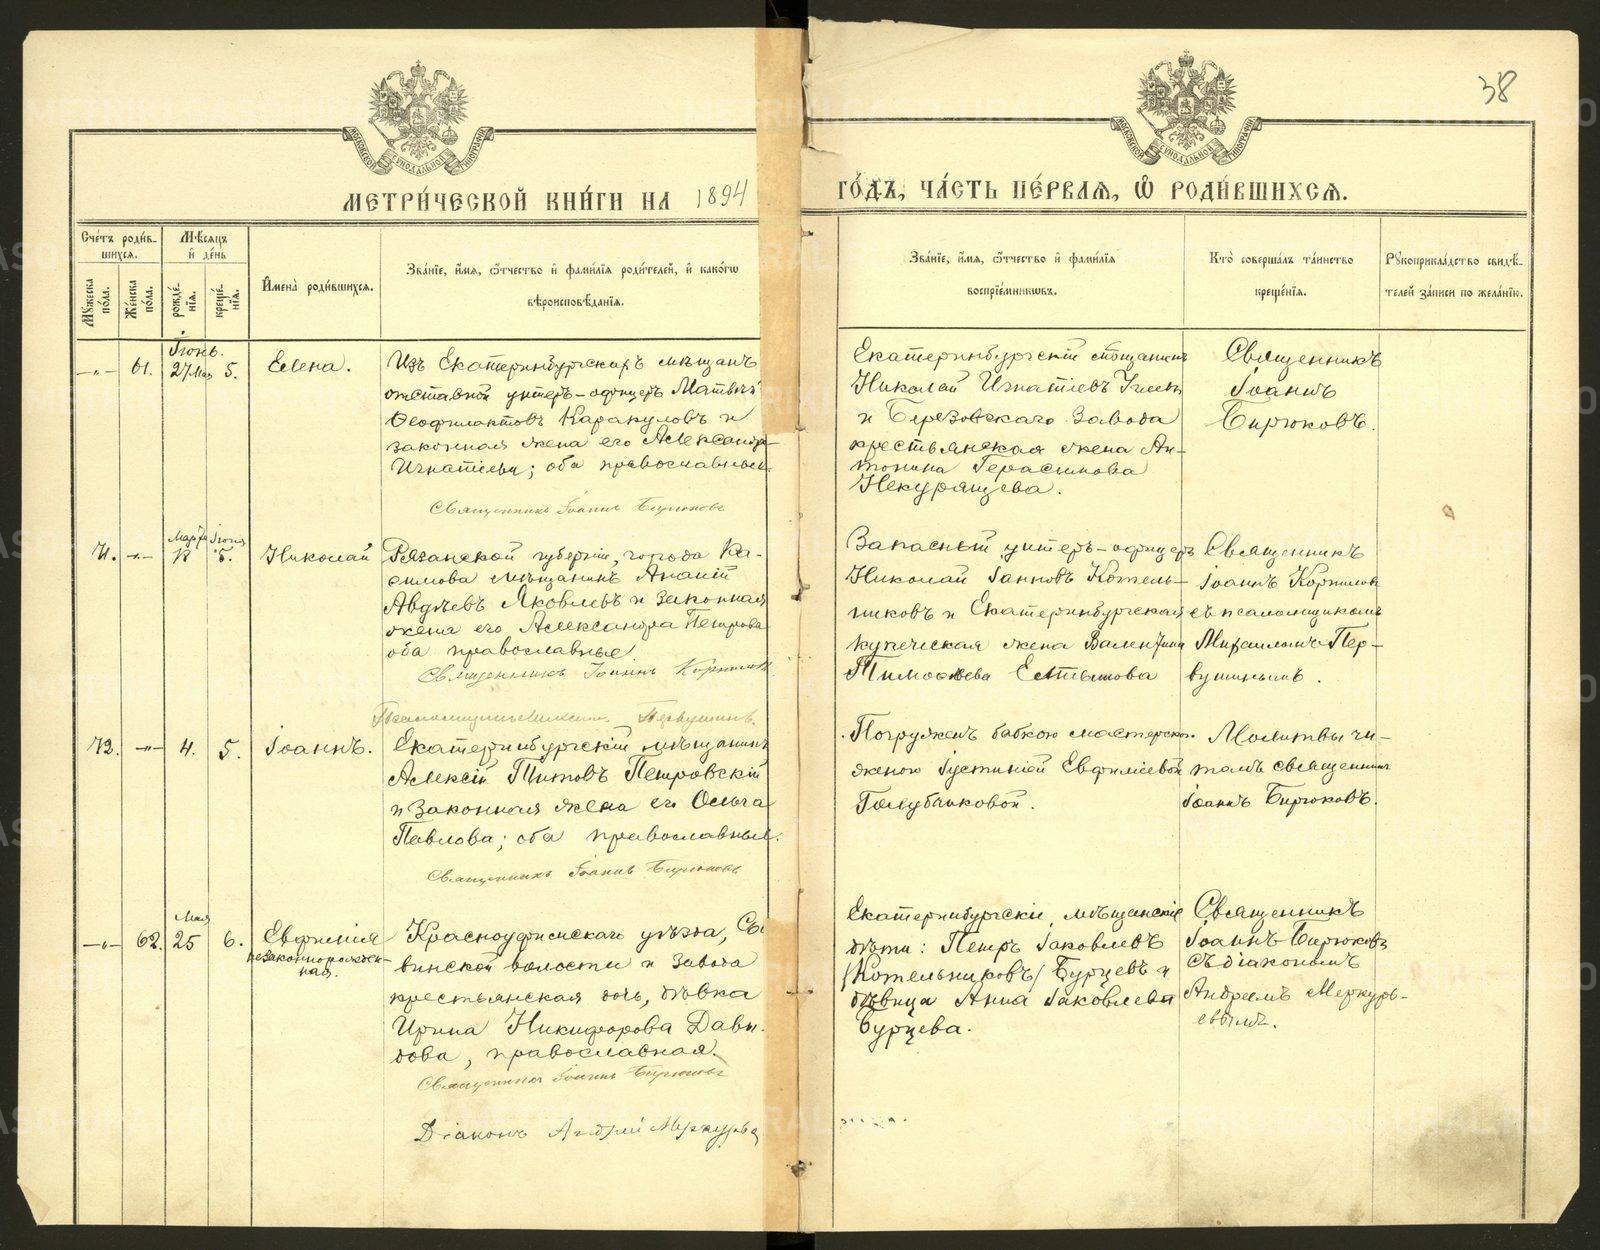 38
МОСКОВСКОЙ СУНОДАЛЬНОЙ ТИПОГРАФІИ
МОСКОВСКОЙ СУНОДАЛЬНОЙ ТИПОГРАФІИ
МЕТРИ́ЧЕСКОЙ КНИ́ГИ НА 1894
ГО́ДЪ, ЧА́СТЬ ПЕ́РВАЯ, Ѡ҆ РОДИ́ВШИХСЯ.
Сче́тъ роди́в-
шихся.
Му́жеска
по́ла.
Же́нска
по́ла.
Мѣ́сяцъ
и҆ де́нь
рожде́-
нїя.
креще́-
нїя.
И҆мена̀ роди́вшихся.
Зва́нїе, и҆́мя, ѻ҆́тчество и҆ фами́лїя роди́телей, и҆ како́гѡ
вѣроисповѣ́данїя.
Зва́нїе, и҆́мя, ѻ҆́тчество и҆ фами́лїя
воспрїе́мникѡвъ.
Кто̀ соверша́лъ та́инство
креще́нїя.
Рꙋкоприкла́дство свидѣ́-
телей за́писи по жела́нїю.
—"— 61. Іюнь. 27 Мая 5. Елена.
Изъ Екатеринбургскихъ мѣщанъ
отставной унтеръ-офицеръ Матвѣй
Феофилактовъ Каракуловъ и
законная жена его Александра
Игнатіева; оба православные.
Священникъ Іоаннъ Бирюковъ
Екатеринбургскій мѣщанинъ
Николай Игнатіевъ
и Березовскаго Завода
крестьянская жена Ан-
тонина Герасимова
Некурящева.
Священникъ
Іоаннъ
Бирюковъ.
71. —"— Марта Іюня 5. Николай
Рязанской губерніи, города Ка-
симова мѣщанинъ Ананій
Авдѣевъ Яковлевъ и законная
жена его Александра Петрова
оба православные
Священникъ Іоаннъ Корнилов
Псаломщикъ Михаилъ Первушинъ.
Запасный унтеръ-офицеръ
Николай Іаковъ Котель-
никовъ и Екатеринбургская
купеческая жена Валентина
Тимофѣева
Священникъ
Іоаннъ Корнилов
съ псаломщикомъ
Михаиломъ Пер-
вушинымъ.
72. —"— 4. 5. Іоаннъ.
Екатеринбургскій мѣщанинъ
Алексій Титовъ Петровскій
и законная жена его Ольга
Павлова; оба православные.
Священникъ Іоаннъ Бирюковъ
Погруженъ бабкою мастерск.
женою Іустиніей Евфиміевой
Голубчиковой.
Молитвы чи-
талъ священникъ
Іоаннъ Бирюковъ.
—"— 62. Мая 25 6. Евфимія
незаконнорожден-
ная.
Красноуфимскаго уѣзда, Сы-
винской волости и завода
крестьянская дочь, дѣвка
Ирина Никифорова Давы-
дова, православная.
Священникъ Іоаннъ Бирюковъ
Діаконъ Андрей Меркурьев
Екатеринбургскіе мѣщанскіе
дѣти: Петръ Іаковлевъ
/Котельниковъ/ Бурцевъ и
дѣвица Анна Іаковлева
Бурцева.
Священникъ
Іоаннъ Бирюковъ
съ діакономъ
Андреемъ Меркурь-
евымъ.